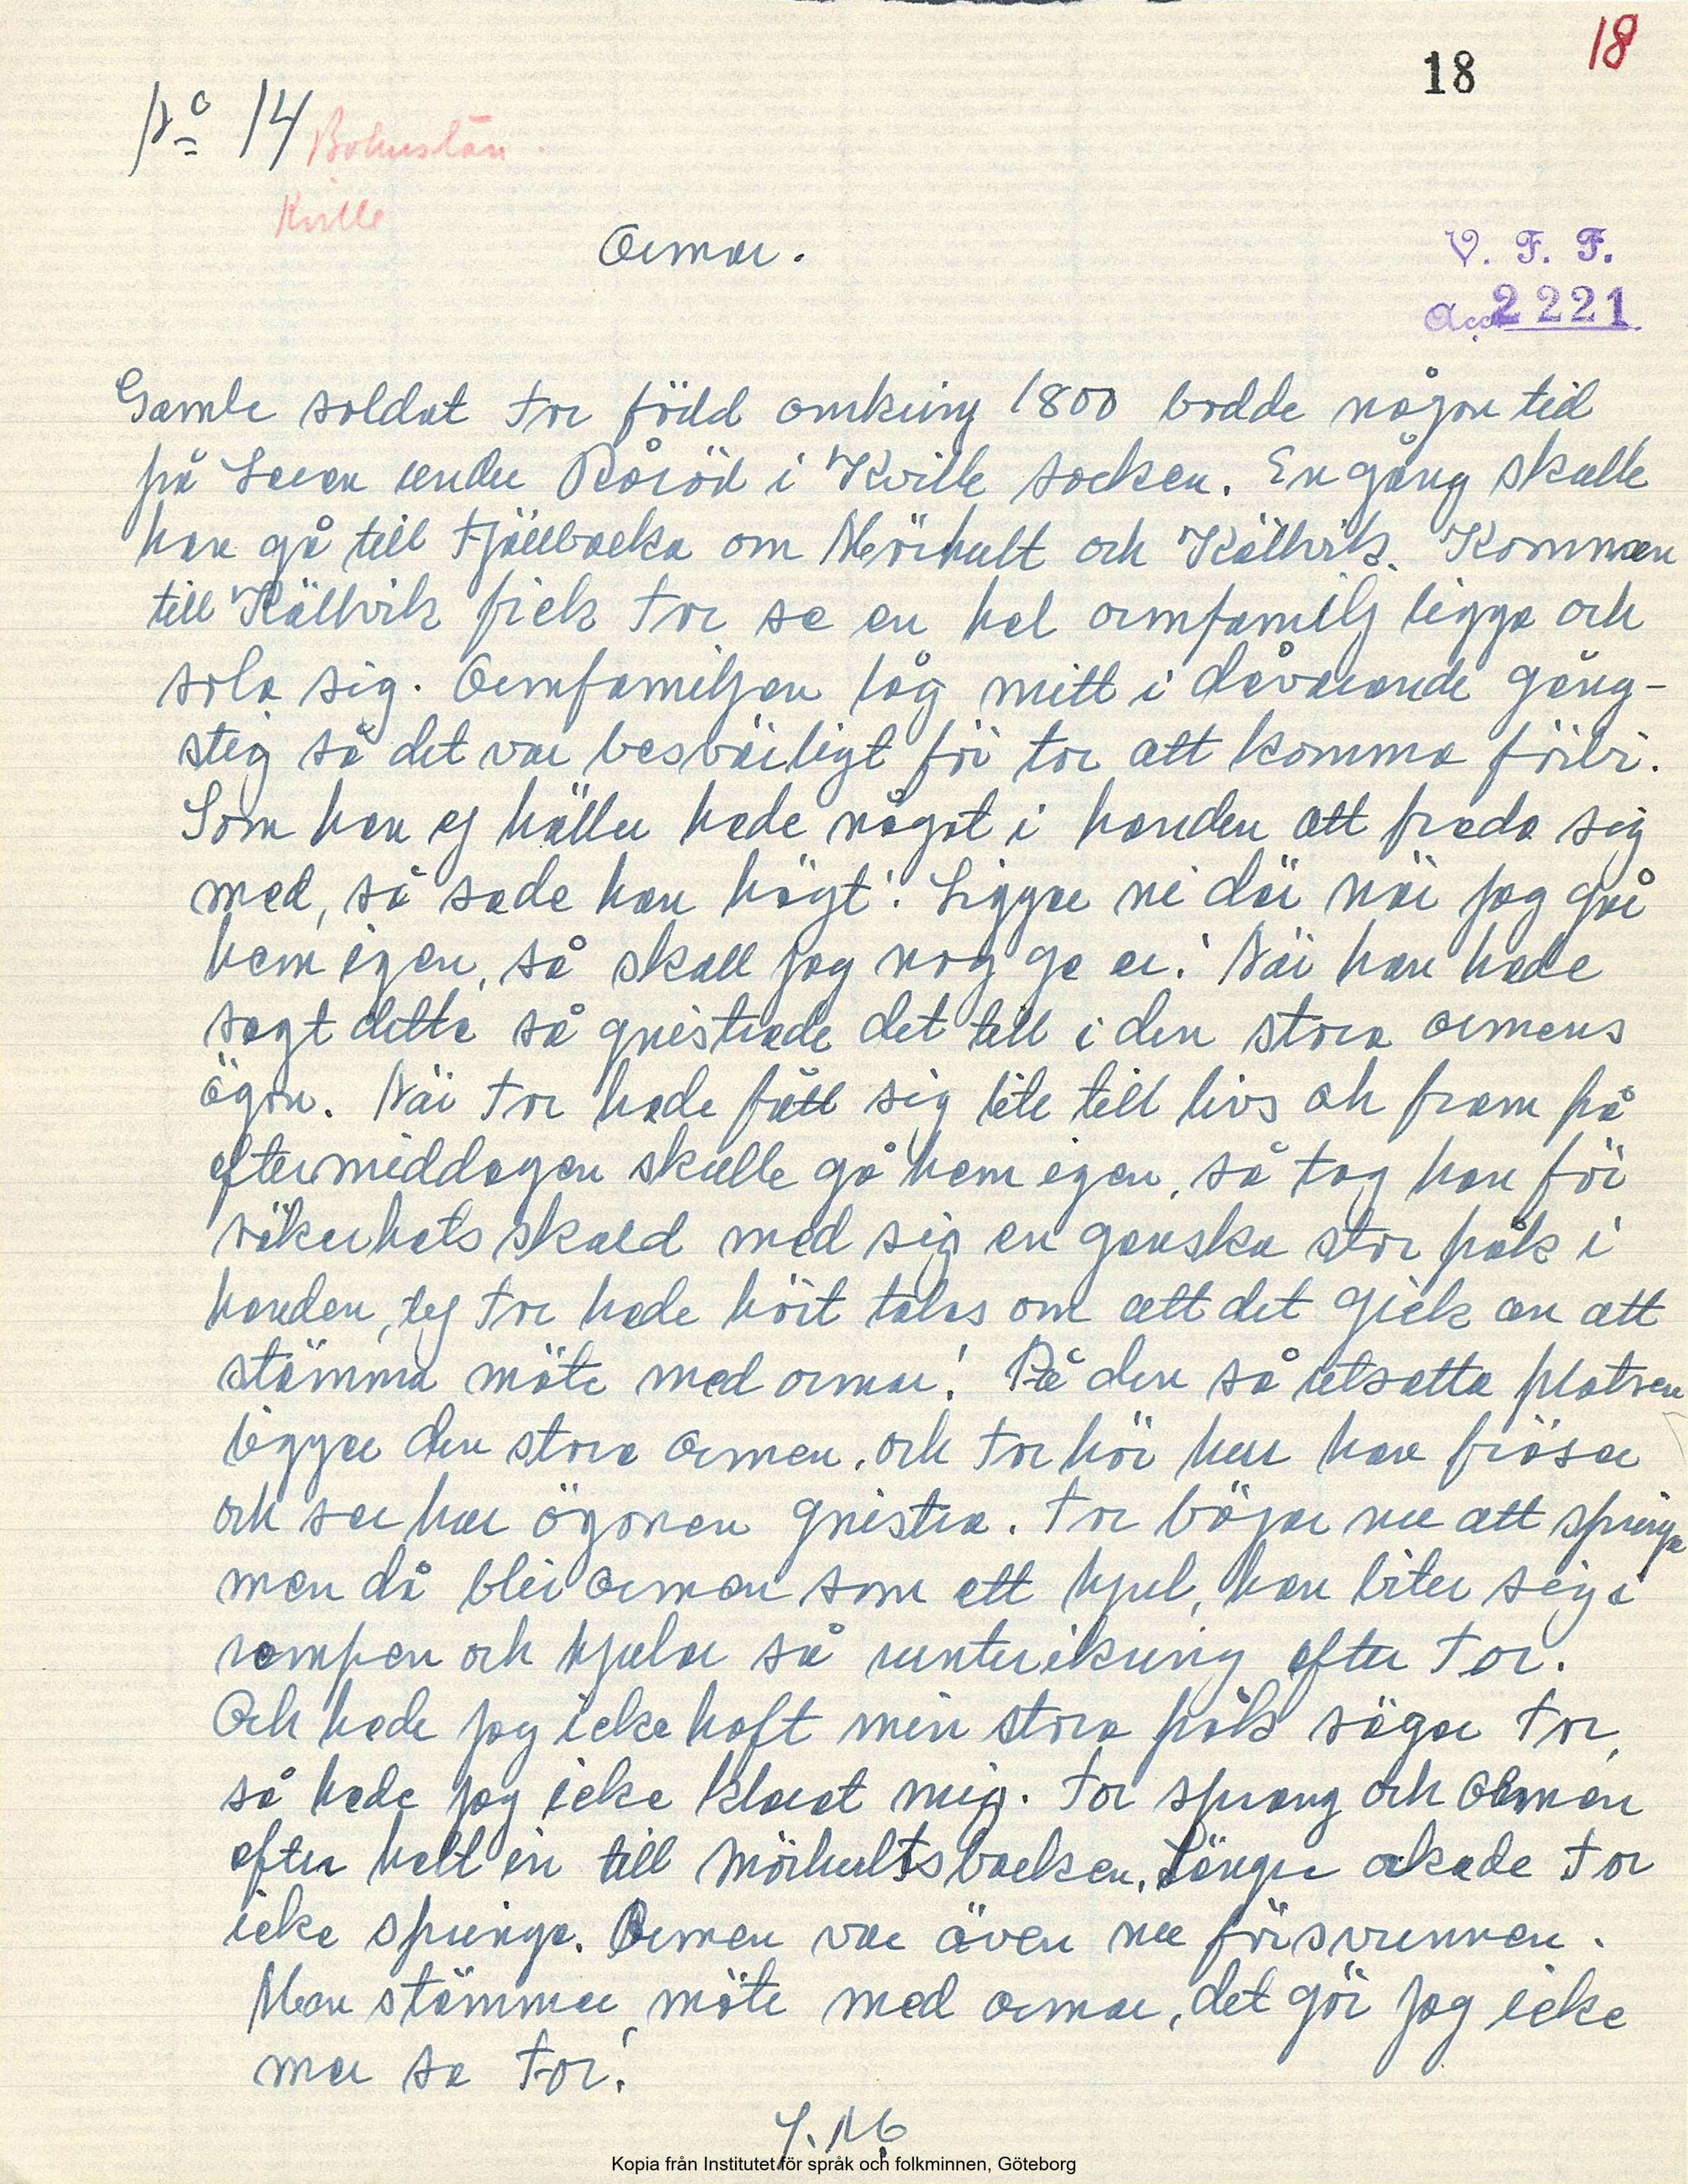 18
18
No 14 Bohuslän.
Kville
Ormar.
V. F. F.
Acc. 2221
Gamle soldat Tor född omkring 1800 bodde någon tid
på under Råröd i Kville socken. En gång skulle
han gå till Fjällbacka om Mörhult och Källvik. Kommen
till Källvik fick Tor se en hel ormfamilj ligga och
sola sig. Ormfamiljen låg mitt i dåvarande gång-
stig så det var besvärligt för tor att komma förbi.
Som han ej häller hade något i handen att freda sig
med, så sade han högt! Liggar ni där när jag går
hem igen, så skall jag nog ge er! När han hade
sagt detta så gnistrade det till i den stora ormens
ögon. När Tor hade fått sig lite till livs ok fram på
eftermiddagen skulle gå hem igen, så tog han för
säkerhets skuld med sig en ganska stor påk i
handen, tej Tor hade hört talas om att det gick an att
stämma möte med ormar! På den så utsatta platsen
liggar den stora ormen, och Tor hör hur han fräser
och ser hur ögonen gnistra. Tor böjar nu att springa
men då bler ormen som ett hjul, han biter sig i
rompen och hjular så runterikring efter Tor.
Och hade jag icke haft min stora påk sägar Tor,
så hade jag icke klarat mig. Tor sprang och Ormen
efter helt in till Mörhultsbacken. Längre orkade Tor
icke springa. Ormen var även nu försvunnen.
Men stämmer möte med ormar, det gör jag icke
mer sa Tor!
Kopia från Institutet för språk och folkminnen, Göteborg